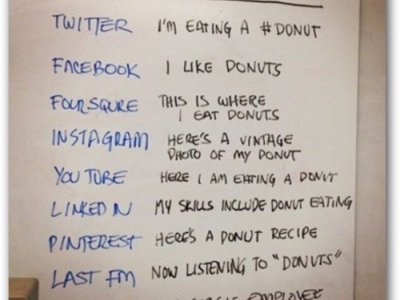 TWITTER I'M EATING A #DONUT
FACEBOOK I LIKE DONUTS
FOURSQURE THIS IS WHERE
I EAT DONUTS
INSTAGRAM HERE'S A VINTAGE
PHOTO OF MY DONUT
YOU TUBE HERE I AM EATING A DONUT
LINKED N MY SKILLS INCLUDE DONUT EATING
PINTEREST HERE'S A DONUT RECIPE
LAST FM NOW LISTENING TO "DONUTS"
EMPLOYEE